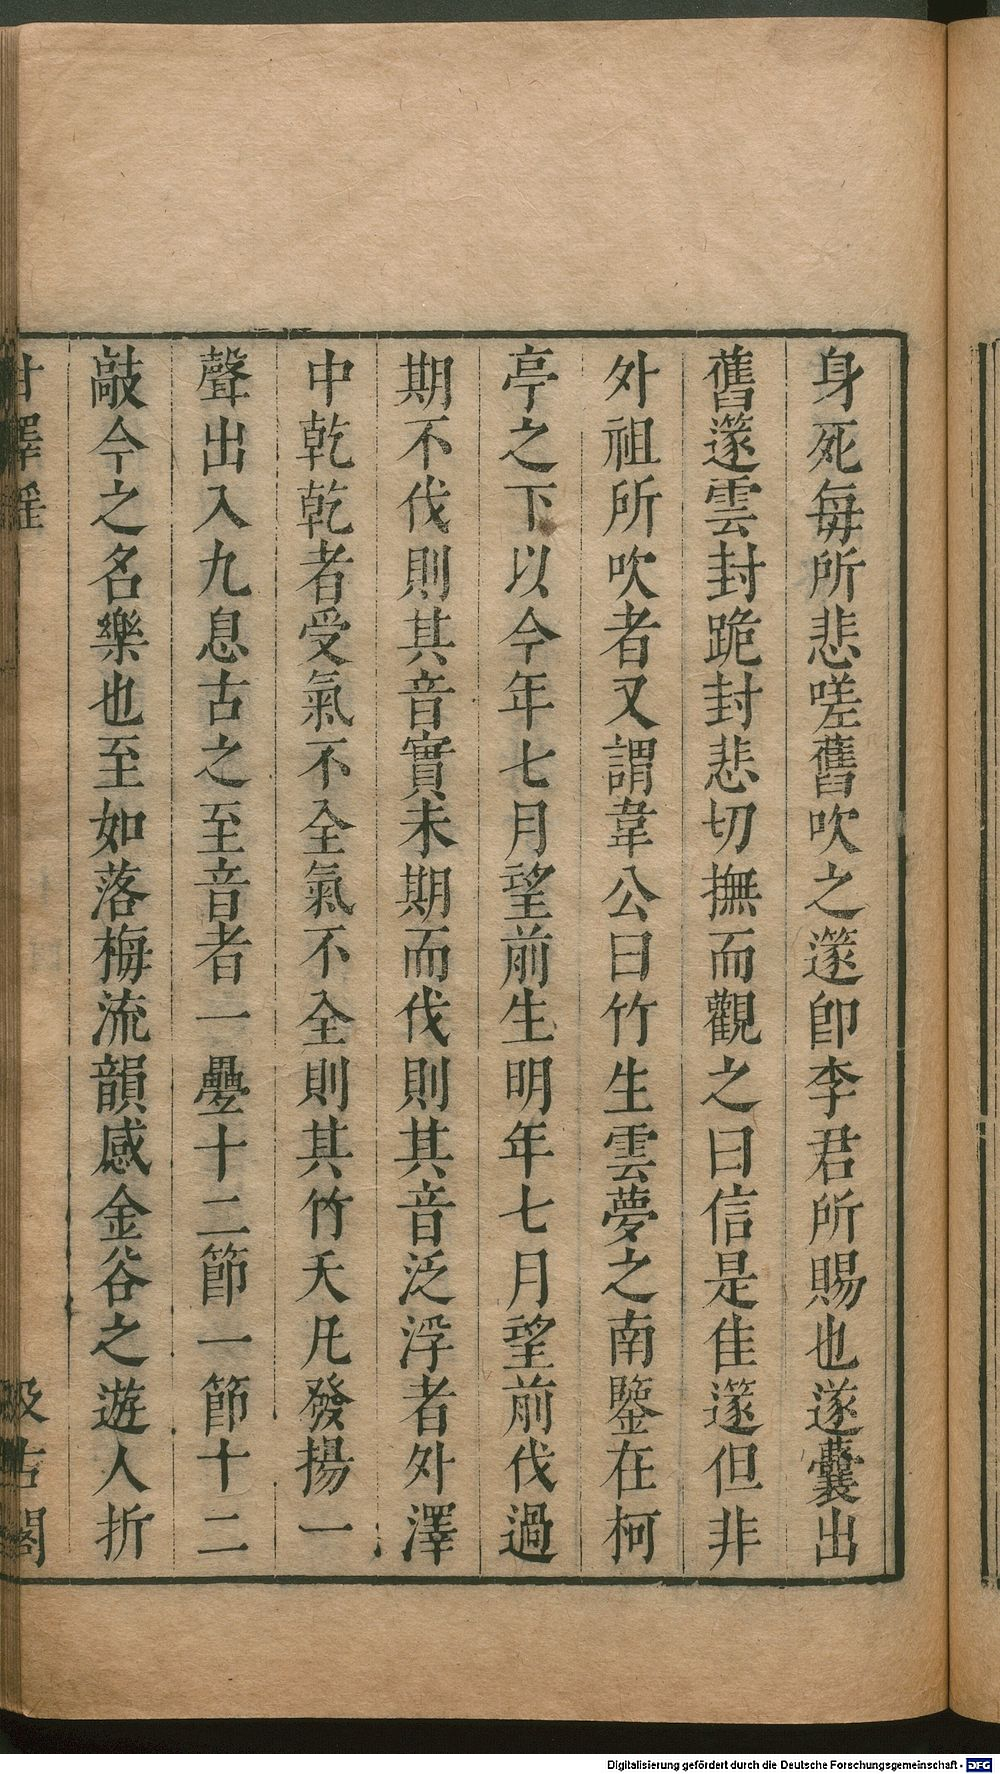 身死每所悲嗟舊吹之篴卽李君所賜也遂囊出
舊篴雲封跪封悲切撫而觀之曰信是佳篴但非
外祖所吹者又謂韋公曰竹生雲夢之南鑒在柯
亭之下以今年七月望前生明年七月望前伐過
期不伐則其音實未期而伐則其音泛浮者外澤
中乾乾者受氣不全氣不全則其竹夭凡發揚一
聲出入九息古之至音者一疊十二節一節十二
敲今之名樂也至如落梅流韻感金谷之遊人折
甘澤謠
汲古閣
Digitalisierung gefördert durch die Deutsche Forschungsgemeinschaft - DFG